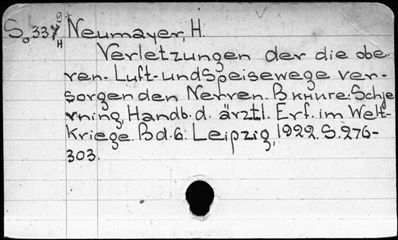 So337 Neumayer, H.
Verletzungen der die obe-
ren- Luft- und Speisewege ver-
sorgenden Nerven. В книге: Schje
rning, Handb. d. ärztl. Erf. im Welt-
kriege. Bd. 6: Leipzig, 1922. S. 276-
303.